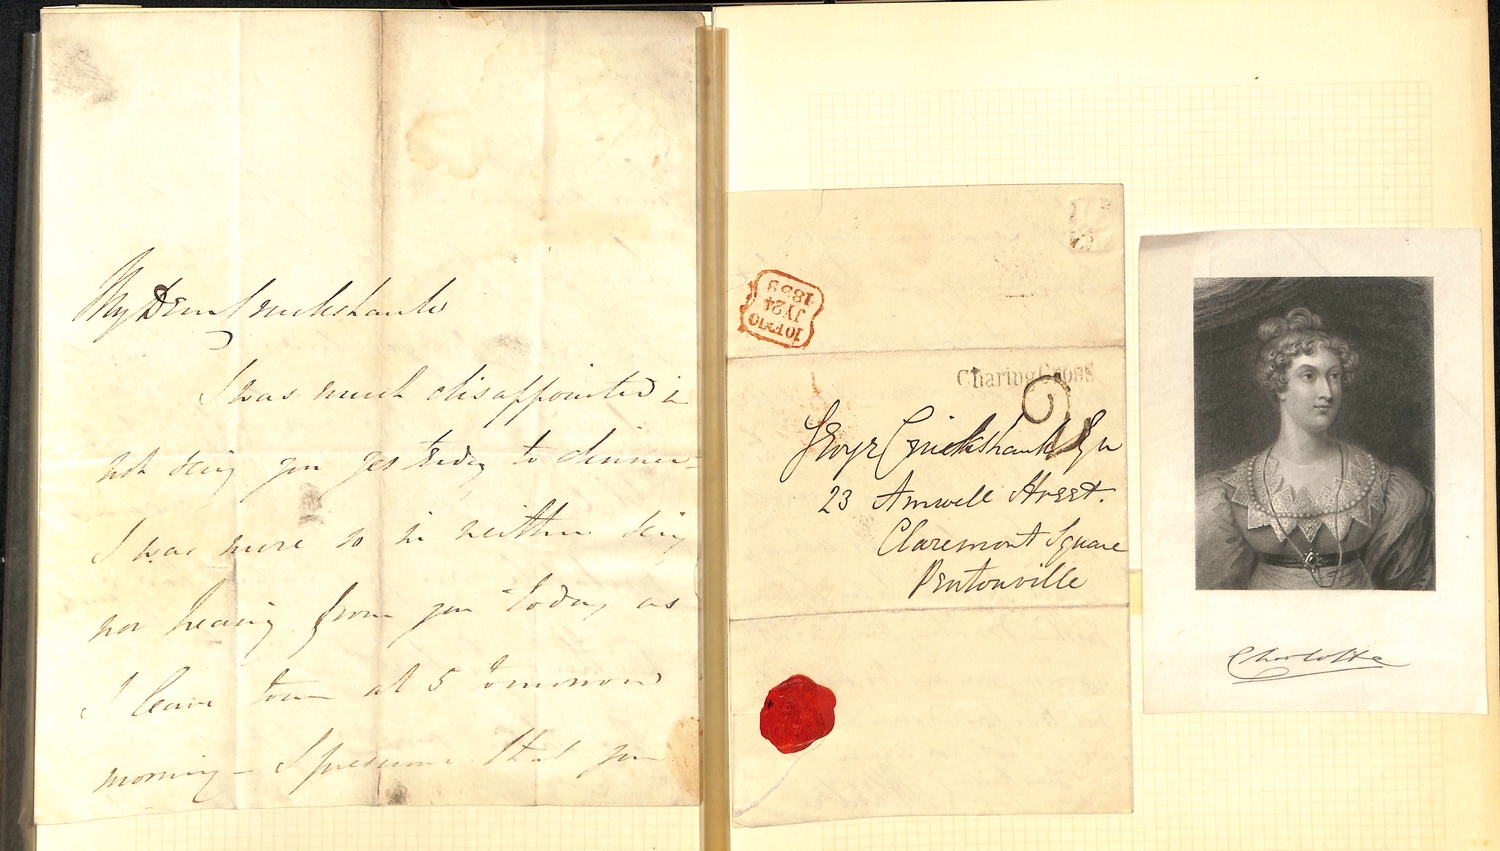 My Dear Cruickshank
I was much disappointed in
not seeing you yesterday to dinner –
I was more so in neither seeing
nor hearing from you today as
I leave town at 5 tomorrow
morning – I presume that you
10 F.N 10
JY 24
1833
Charing Cross
2
George Cruickshank Esqr
23 Amwell Street.
Claremont Square
Pentonville
Charlotte